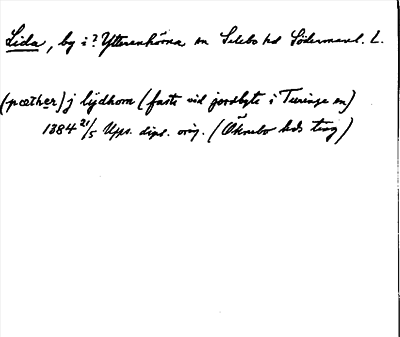 Lida, by i? Ytterenhörna sn Selebo hd Södermanl. L.
(pæther) j lijdhom (faste vid jordbyte i Turinge sn)
1384 21/5 Upps. dipl. orig. (Öknebo hds ting)